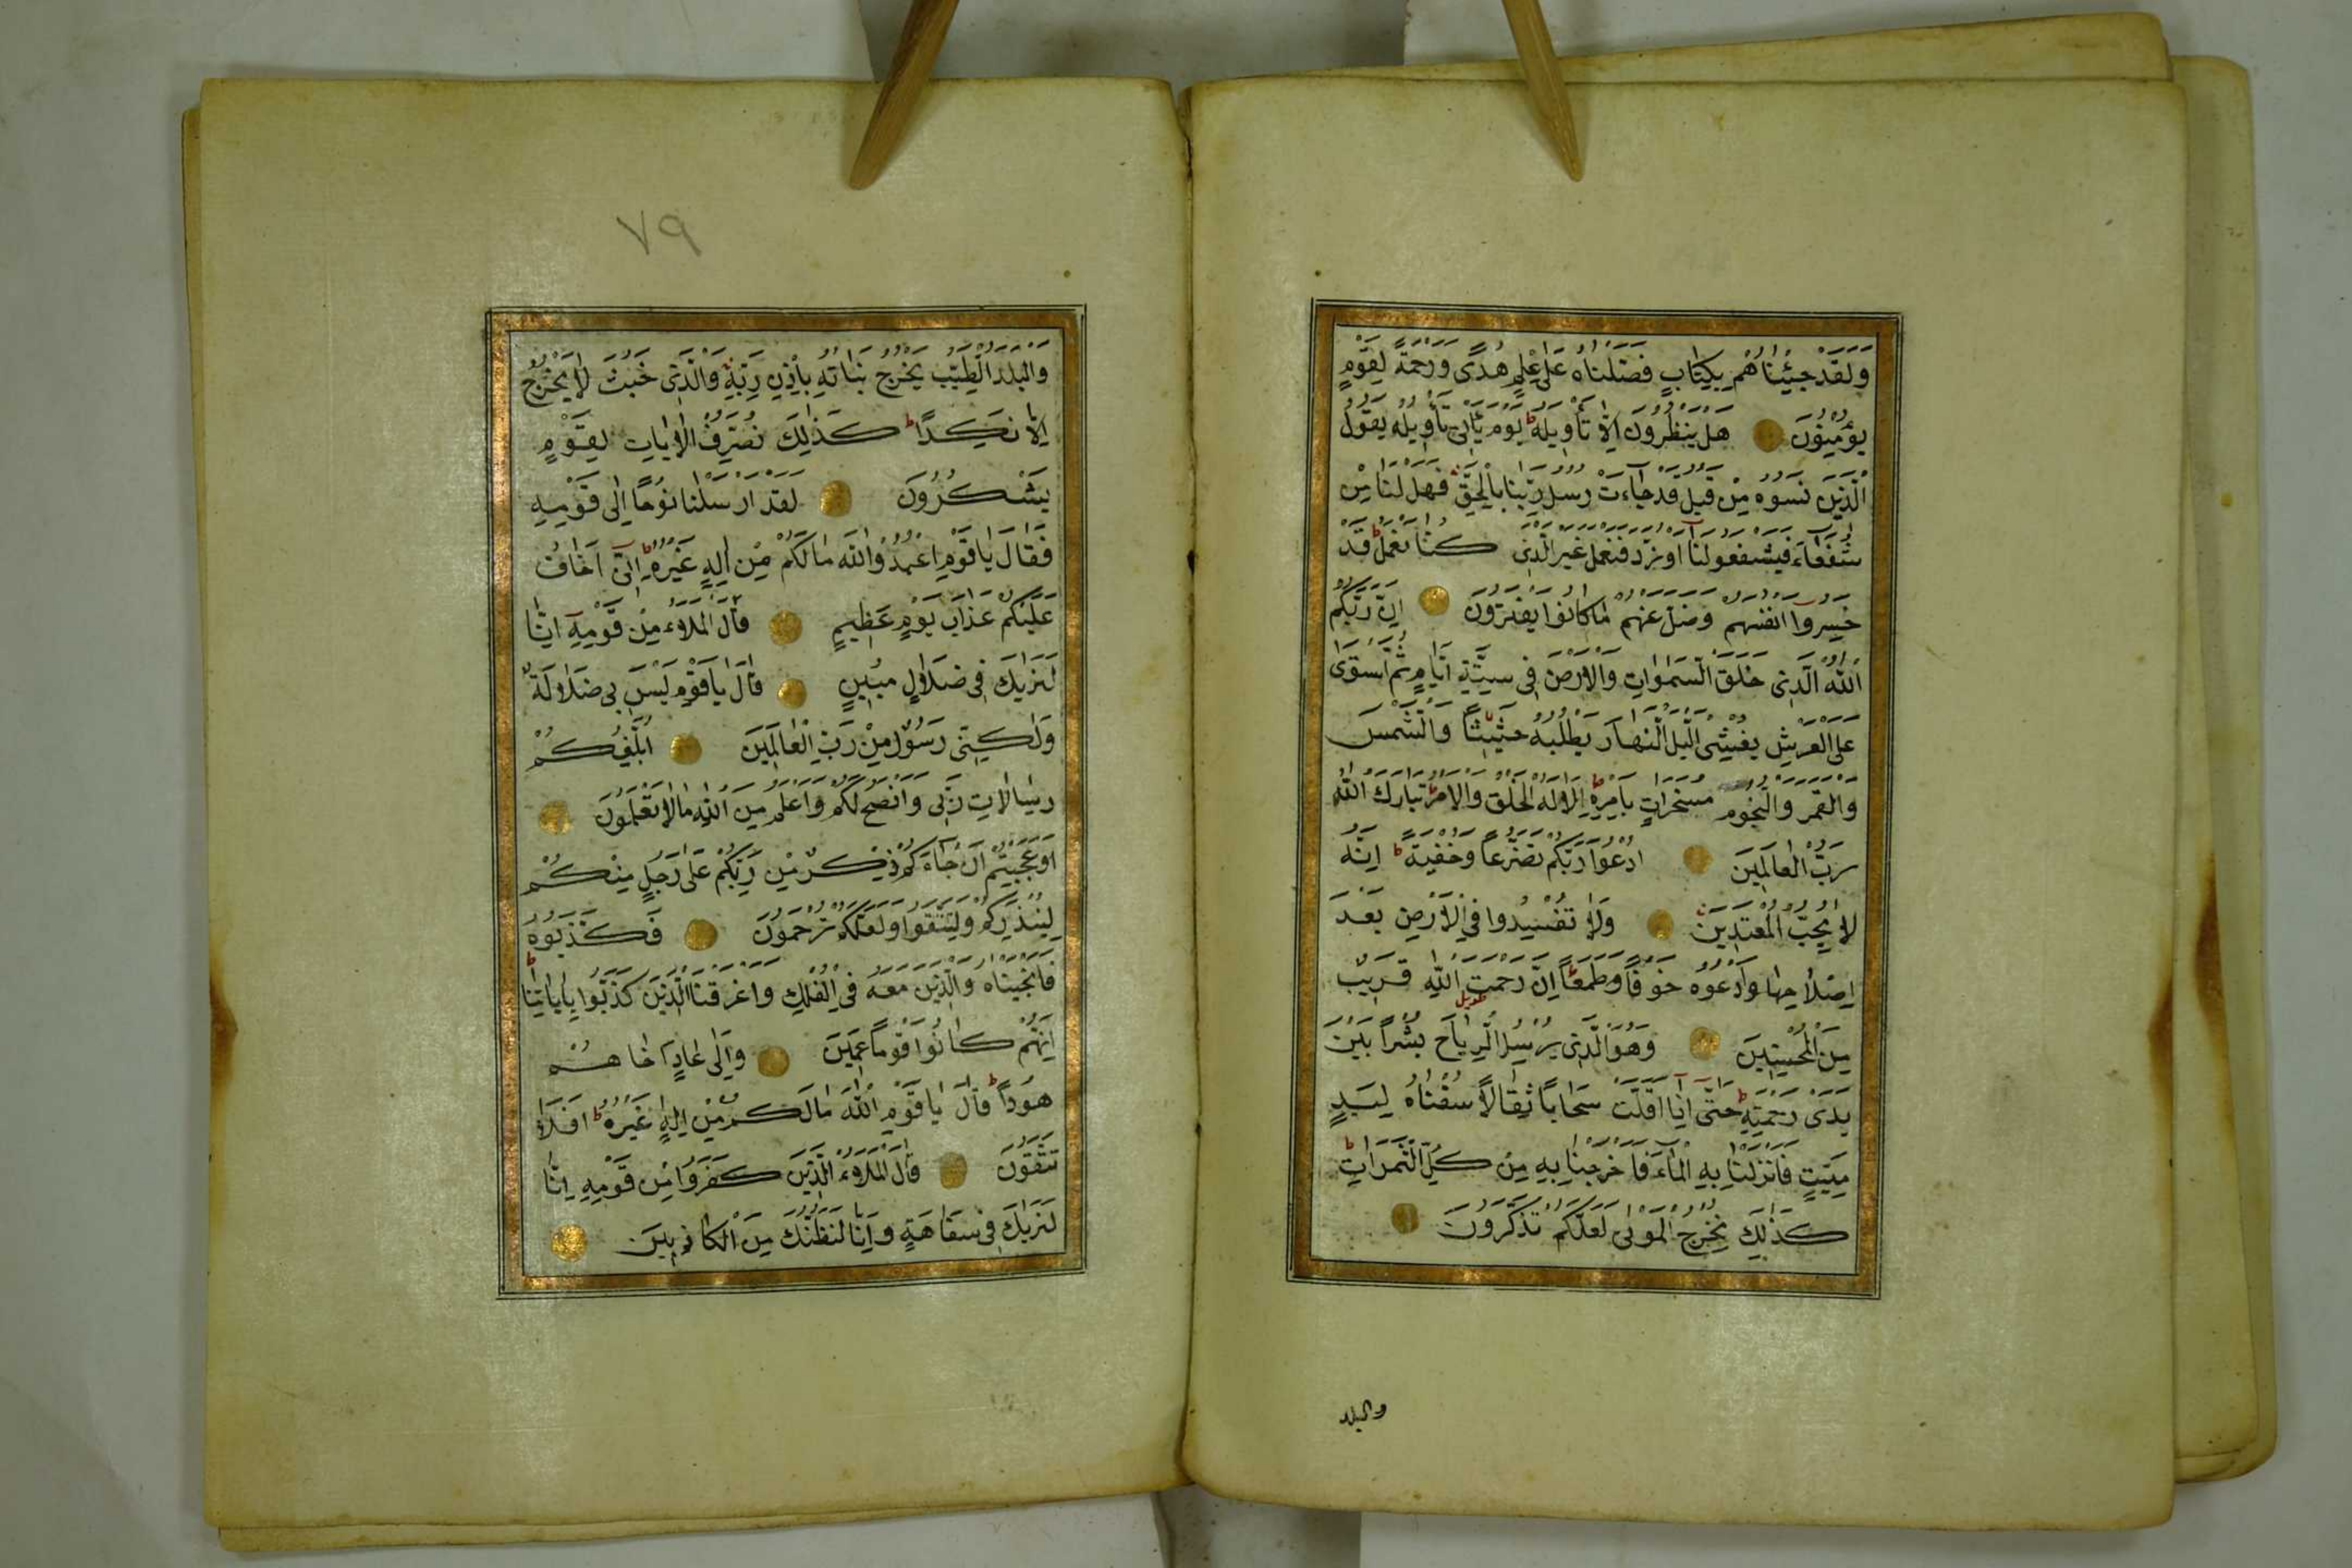 وَلَقَدْ جِئْنَاهُمْ بِكِتَابٍ فَصَّلْنَاهُ عَلَى عِلْمٍ هُدًى وَرَحْمَةً لِقَوْمٍ
يُؤْمِنُونَ هَلْ يَنْظُرُونَ اِلَّا تَأْوِيلَهُ ط يَوْمَ يَأْتِى تَأْوِيلُهُ يَقُولُ
الَّذِينَ نَسُوهُ مِنْ قَبْلُ قَدْ جَاءَتْ رُسُلُ رَبِّنَا بِالْحَقِّ فَهَلْ لَنَا مِنْ
شُفَعَاءَ فَيَشْفَعُوا لَنَا اَوْ نُرَدُّ فَنَعْمَلَ غَيْرَ الَّذِى كُنَّا نَعْمَلُ ط قَدْ
خَسِرُوا اَنْفُسَهُمْ وَضَلَّ عَنْهُمْ مَا كَانُوا يَفْتَرُونَ اِنَّ رَبَّكُمُ
اللّٰهُ الَّذِى خَلَقَ السَّمَوَاتِ وَالْاَرْضَ فِى سِتَّةِ اَيَّامٍ ثُمَّ اسْتَوَى
عَلَى الْعَرْشِ يُغْشِى الَّيْلَ النَّهَارَ يَطْلُبُهُ حَثِيثًا وَالشَّمْسَ
وَالْقَمَرَ وَالنُّجُومَ مُسَخَّرَاتٍ بِاَمْرِهِ ط اَلَا لَهُ الْخَلْقُ وَالْاَمْرُ ط تَبَارَكَ اللّٰهُ
رَبُّ الْعَالَمِينَ اُدْعُوا رَبَّكُمْ تَضَرُّعًا وَخُفْيَةً ط اِنَّهُ
لَا يُحِبُّ الْمُعْتَدِينَ وَلَا تُفْسِدُوا فِى الْاَرْضِ بَعْدَ
اِصْلَاحِهَا وَادْعُوهُ خَوْفًا وَطَمَعًا ط اِنَّ رَحْمَتَ اللّٰهِ قَرِيبٌ
طويل
مِنَ الْمُحْسِنِينَ وَهُوَ الَّذِى يُرْسِلُ الرِّيَاحَ بُشْرًا بَيْنَ
يَدَىْ رَحْمَتِهِ ط حَتَّى اِذَا اَقَلَّتْ سَحَابًا ثِقَالًا سُقْنَاهُ لِبَلَدٍ
مَيِّتٍ فَاَنْزَلْنَا بِهِ الْمَاءَ فَاَخْرَجْنَا بِهِ مِنْ كُلِّ الثَّمَرَاتِ ط
كَذٰلِكَ نُخْرِجُ الْمَوْتٰى لَعَلَّكُمْ تَذَكَّرُونَ
والبلد
٧٩
وَالْبَلَدُ الطَّيِّبُ يَخْرُجُ نَبَاتُهُ بِاِذْنِ رَبِّهِ وَالَّذِى خَبُثَ لَا يَخْرُجُ
اِلَّا نَكِدًا ط كَذٰلِكَ نُصَرِّفُ الْاٰيَاتِ لِقَوْمٍ
يَشْكُرُونَ لَقَدْ اَرْسَلْنَا نُوحًا اِلٰى قَوْمِهِ
فَقَالَ يَا قَوْمِ اعْبُدُوا اللّٰهَ مَا لَكُمْ مِنْ اِلٰهٍ غَيْرُهُ ط اِنِّى اَخَافُ
عَلَيْكُمْ عَذَابَ يَوْمٍ عَظِيمٍ قَالَ الْمَلَاُ مِنْ قَوْمِهِ اِنَّا
لَنَرٰيكَ فِى ضَلَالٍ مُبِينٍ قَالَ يَا قَوْمِ لَيْسَ بِى ضَلَالَةٌ
وَلٰكِنِّى رَسُولٌ مِنْ رَبِّ الْعَالَمِينَ اُبَلِّغُكُمْ
رِسَالَاتِ رَبِّى وَاَنْصَحُ لَكُمْ وَاَعْلَمُ مِنَ اللّٰهِ مَا لَا تَعْلَمُونَ
اَوَعَجِبْتُمْ اَنْ جَاءَكُمْ ذِكْرٌ مِنْ رَبِّكُمْ عَلٰى رَجُلٍ مِنْكُمْ
لِيُنْذِرَكُمْ وَلِتَتَّقُوا وَلَعَلَّكُمْ تُرْحَمُونَ فَكَذَّبُوهُ
فَاَنْجَيْنَاهُ وَالَّذِينَ مَعَهُ فِى الْفُلْكِ وَاَغْرَقْنَا الَّذِينَ كَذَّبُوا بِاٰيَاتِنَا ط
اِنَّهُمْ كَانُوا قَوْمًا عَمِينَ وَاِلٰى عَادٍ اَخَاهُمْ
هُودًا ط قَالَ يَا قَوْمِ اللّٰهَ مَا لَكُمْ مِنْ اِلٰهٍ غَيْرُهُ ط اَفَلَا
تَتَّقُونَ قَالَ الْمَلَاُ الَّذِينَ كَفَرُوا مِنْ قَوْمِهِ اِنَّا
لَنَرٰيكَ فِى سَفَاهَةٍ وَاِنَّا لَنَظُنُّكَ مِنَ الْكَاذِبِينَ